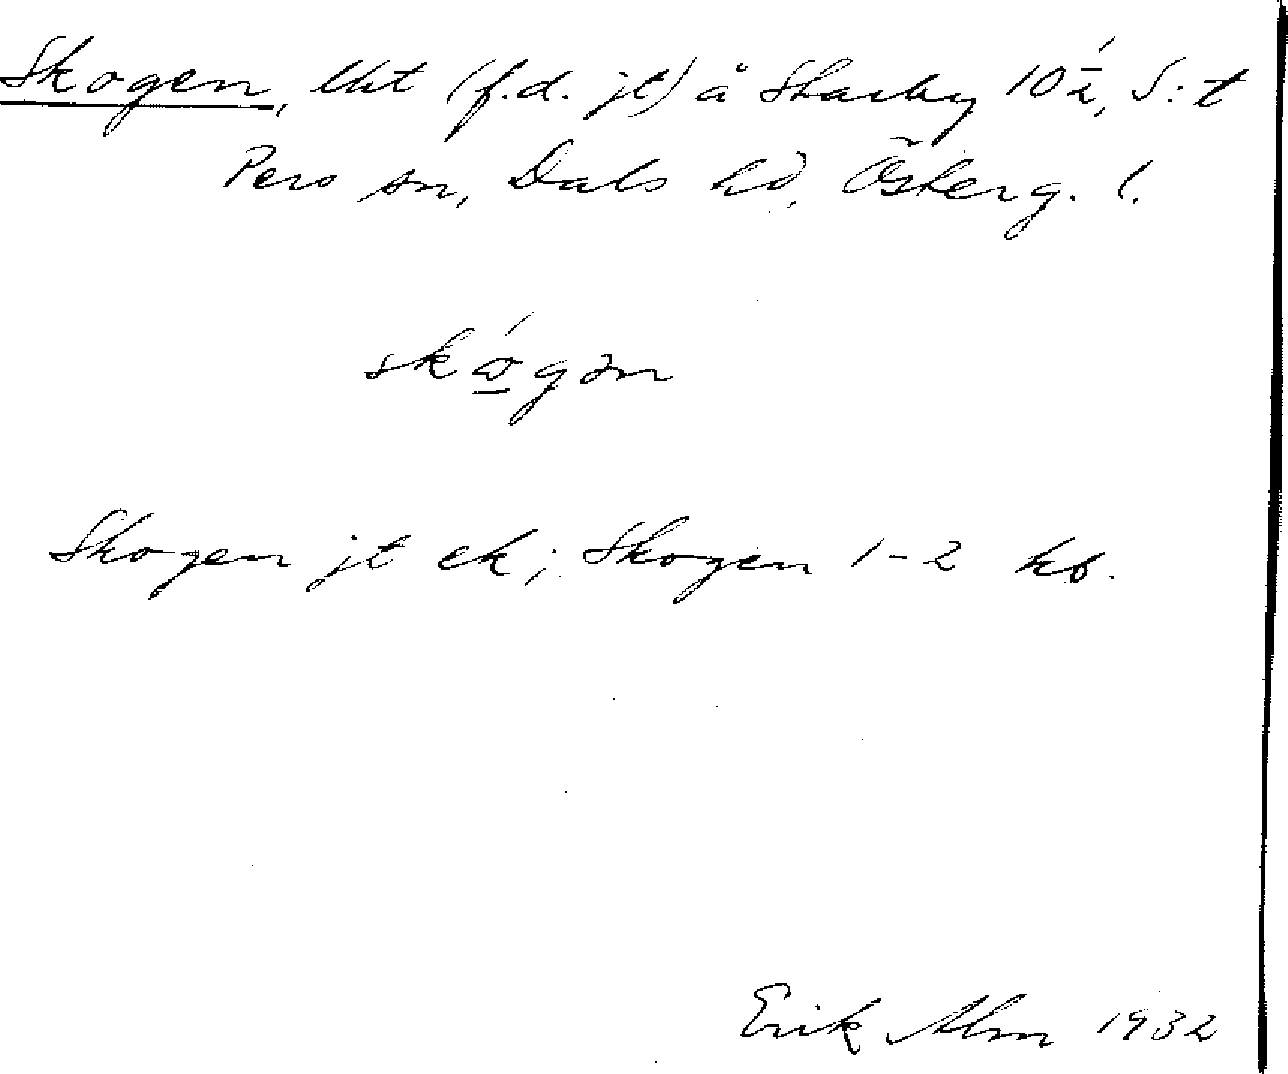 Skogen, lht (f.d. jt) å Skarby 10 1/2, S:t
Pers sn, Dals hd, Österg. l.
skógən
Skogen jt ek; Skogen 1-2 kb.
Erik Alm 1932